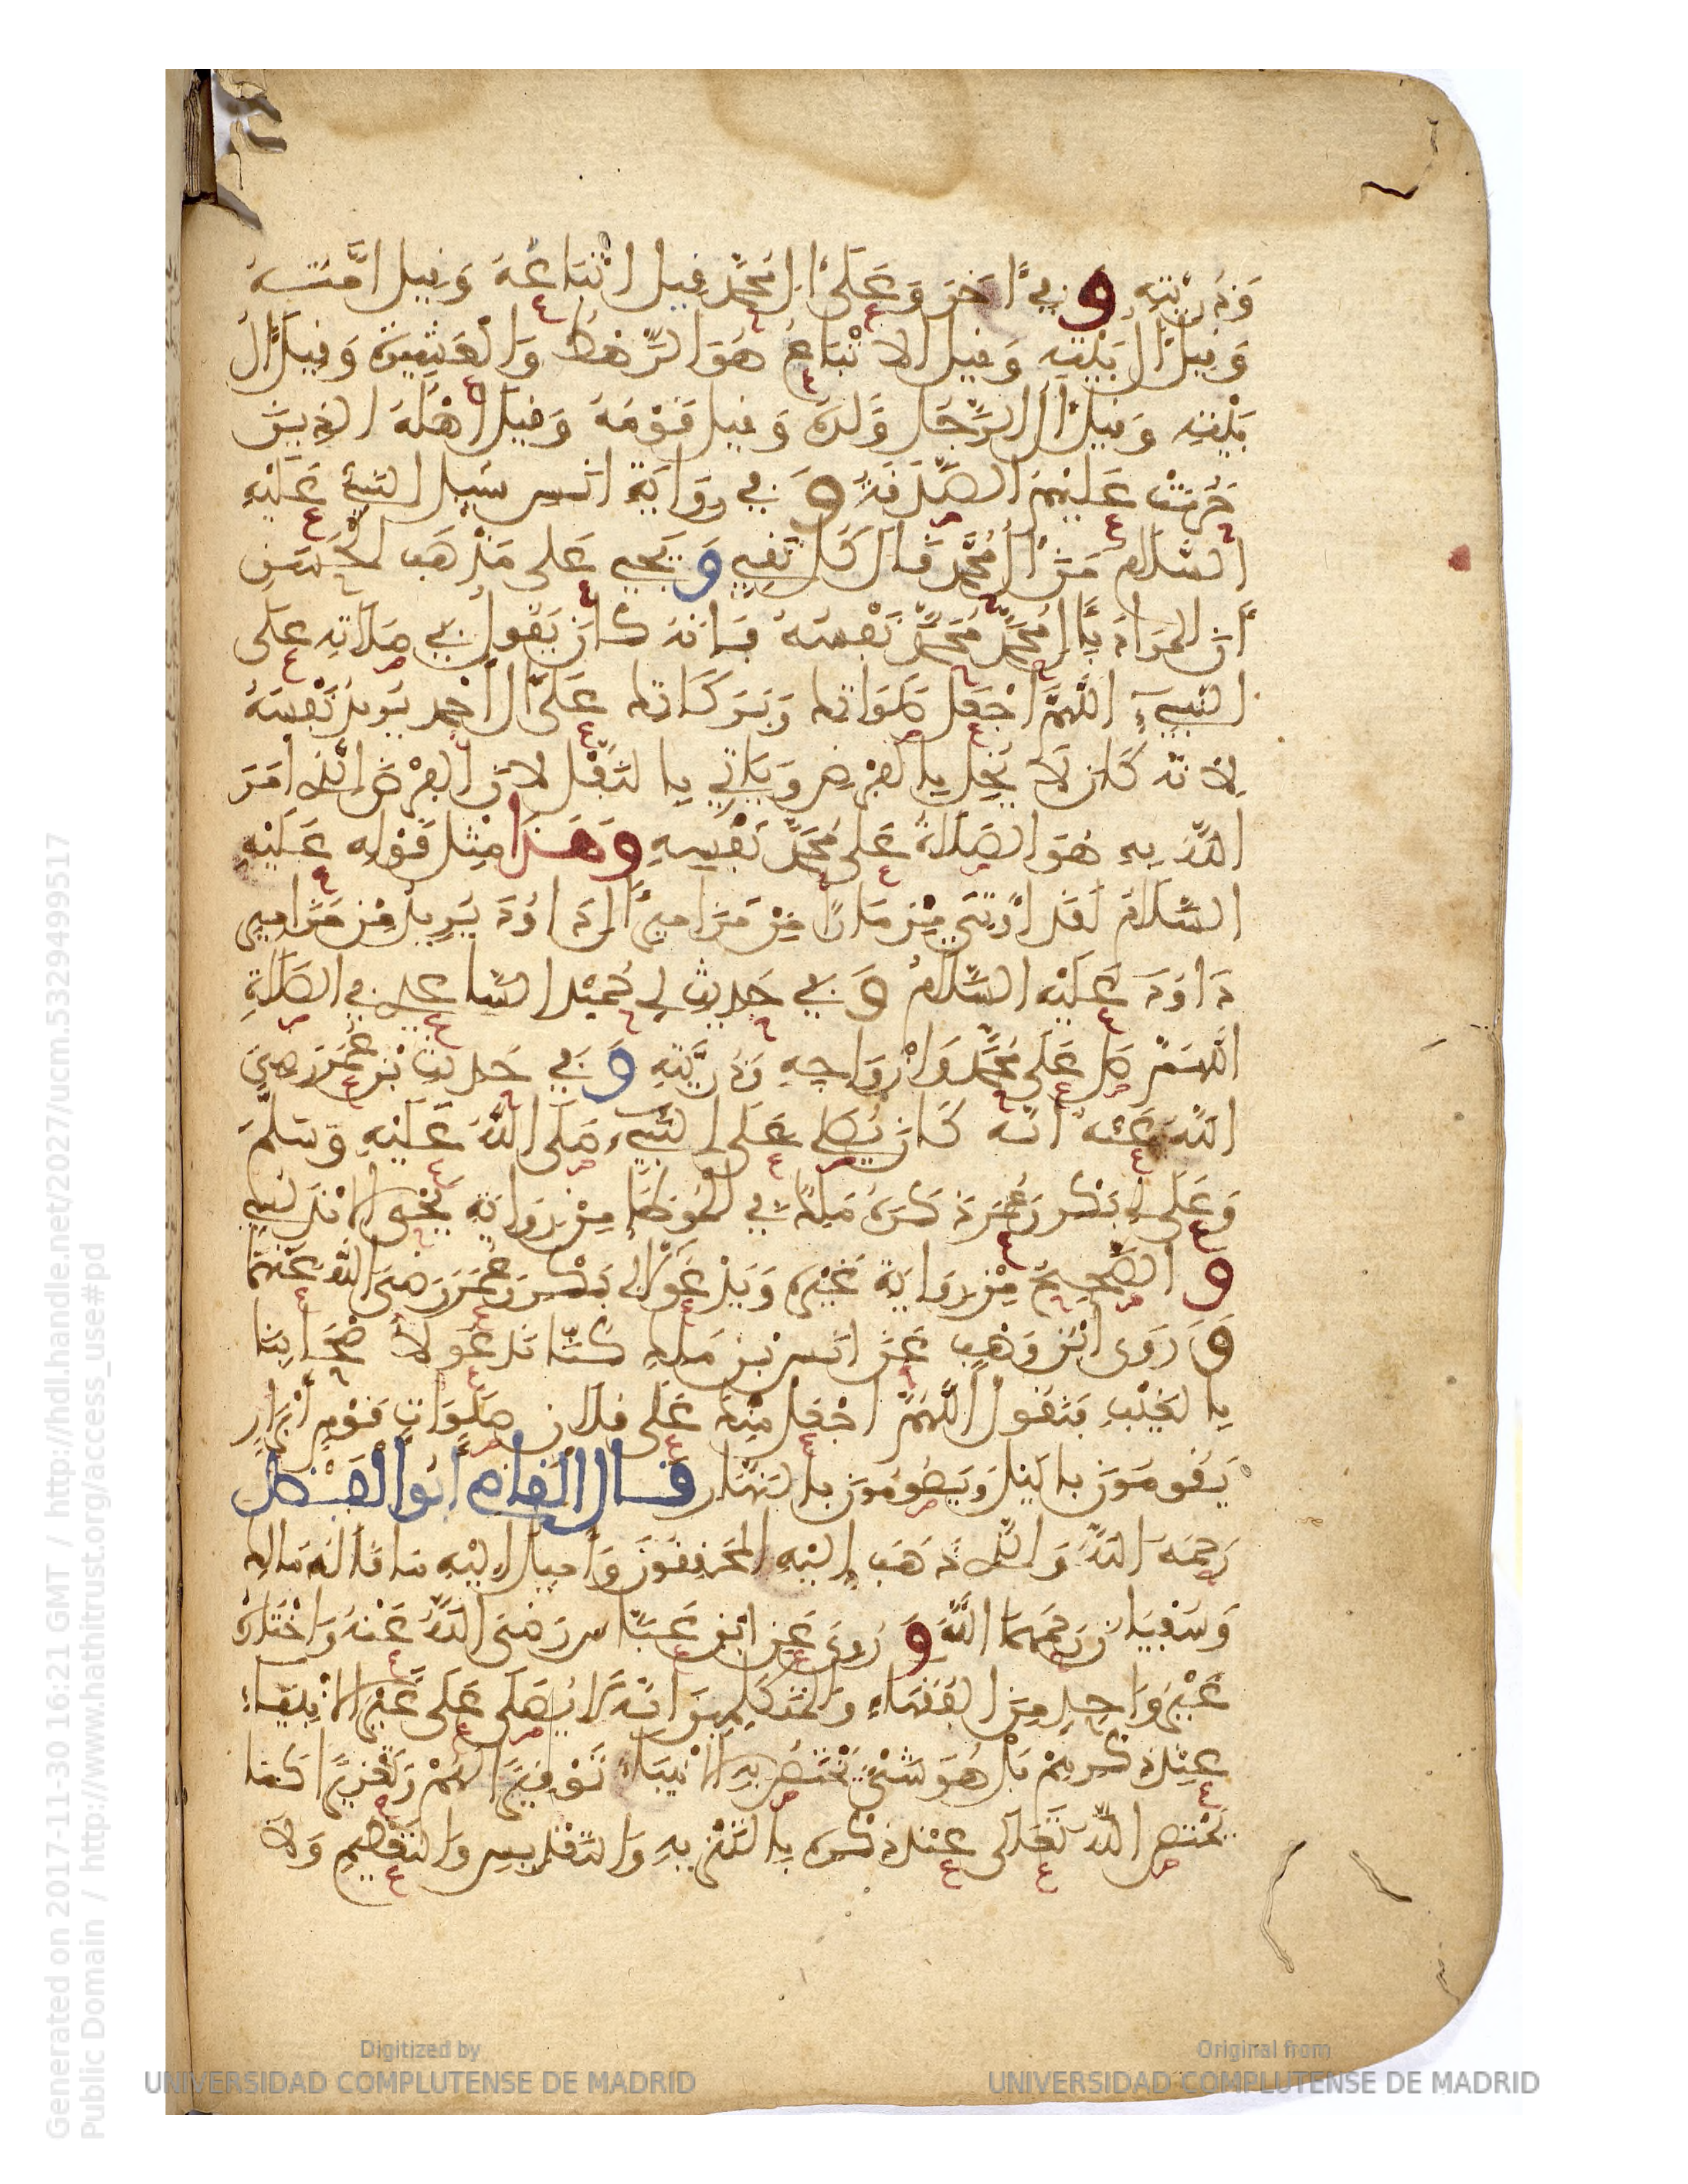 وَذُرِّيَّتِهِ وفي آخَرَ وَعَلَى آلِ مُحَمَّدٍ قيل اتْبَاعُهُ وَقيل امَّتُهُ
وَقيل آلُ بَيْتِهِ وَقيل الاتْبَاعُ هُوَ الرَّهْطُ وَالْعَشِيرَةُ وَقيل آلُ
بَيْتِهِ وَقيل آلُ الرَّجُلِ وَلَدُهُ وَقيل قَوْمُهُ وَقيل اهْلُهُ الذِينَ
حُرِمَتْ عَلَيْهِمُ الصَّدَقَةُ وَفي رِوَايَةِ انَسٍ سُيلَ النَّبِيُّ عَلَيْهِ
السَّلَامُ مَنْ آلُ مُحَمَّدٍ قَالَ كُلُّ تَقِيٍّ وَيَجِي عَلَى مَذْهَبِ الْحَسَنِ
أَنَّ الْمُرَادَ بِآلِ مُحَمَّدٍ مُحَمَّدٌ نَفْسُهُ فَإِنَّهُ كَانَ يَقُولُ في صَلَاتِهِ عَلَى
النَّبِيِّ اللَّهُمَّ اجْعَلْ صَلَوَاتِكَ وَبَرَكَاتِكَ عَلَى آلِ أَحْمَدَ يُرِيدُ نَفْسَهُ
لِأَنَّهُ كَانَ لَا يُخِلُّ بِالْفَرْضِ وَيَاتِي بِالنَّفْلِ لأَنَّ الْفَرْضَ الَّذِي أَمَرَ
اللَّهُ بِهِ هُوَ الصَّلَاةُ عَلَى مُحَمَّدٍ نَفْسِهِ وَهَذَا مِثْلُ قَوْلِهِ عَلَيْهِ
السَّلَامُ لَقَدْ أُوتِيَ مِزْمَارًا مِنْ مَزَامِيرِ آلِ دَاوُدَ يُرِيدُ مِنْ مَزَامِيرِ
دَاوُدَ عَلَيْهِ السَّلَامُ وَفي حَدِيثِ أَبِي حُمَيْدٍ السَّاعِدِي في الصَّلَاةِ
اللَّهُمَّ صَلِّ عَلَى مُحَمَّدٍ وَأَزْوَاجِهِ وَذُرِّيَّتِهِ وَفي حَدِيثِ بْنِ عُمَرَ رَضِيَ
اللَّهُ عَنْهُ أَنَّهُ كَانَ يُصَلِّي عَلَى النَّبِيِّ صَلَّى اللَّهُ عَلَيْهِ وَسَلَّمَ
وَعَلَى أَبِي بَكْرٍ وَعُمَرَ ذَكَرَهُ مَلِكٌ في الْمُوَطَّإِ مِنْ رِوَايَةِ يَحْيَى الأَنْدَلُسِي
وَالصَّحِيحُ مِنْ رِوَايَةِ غَيْرِهِ وَيَدْعُو لأَبِي بَكْرٍ وَعُمَرَ رَضِيَ اللَّهُ عَنْهُمَا
وَرَوَى ابْنُ وَهْبٍ عَنْ أَنَسِ بْنِ مَلِكٍ كُنَّا نَدْعُو لأَصْحَابِنَا
بِالْغَيْبِ فَنَقُولُ اللَّهُمَّ اجْعَلْ مِنْكَ عَلَى فُلَانٍ صَلَوَاتِ قَوْمٍ أَبْرَارٍ
يَقُومُونَ بِاللَّيْلِ وَيَصُومُونَ بِالنَّهَارِ قَالَ الْقَاضِي أَبُو الْفَضْلِ
رَحِمَهُ اللَّهُ وَالَّذِي ذَهَبَ إِلَيْهِ الْمُحَقِّقُونَ وَأَمِيلُ إِلَيْهِ مَا قَالَهُ مَالِكٌ
وَسُفْيَانُ رَحِمَهُمَا اللَّهُ وَرُوِيَ عَنِ ابْنِ عَبَّاسٍ رَضِيَ اللَّهُ عَنْهُ وَاخْتَارَهُ
غَيْرُ وَاحِدٍ مِنَ الْفُقَهَاءِ وَالْمُتَكَلِّمِينَ أَنَّهُ لَا يُصَلَّى عَلَى غَيْرِ الأَنْبِيَاءِ
عِنْدَ ذِكْرِهِمْ بَلْ هُوَ شَيْءٌ يَخْتَصُّ بِهِ الأَنْبِيَاءُ تَوْقِيرًا لَهُمْ وَتَعْزِيزًا كَمَا
يُخْتَصُّ اللَّهُ تَعَالَى عِنْدَ ذِكْرِهِ بِالتَّنْزِيهِ وَالتَّقْدِيسِ وَالتَّعْظِيمِ وَلَا
Generated on 2017-11-30 16:21 GMT / http://hdl.handle.net/2027/ucm.5329499517
Public Domain / http://www.hathitrust.org/access_use#pd
Digitized by
UNIVERSIDAD COMPLUTENSE DE MADRID
Original from
UNIVERSIDAD COMPLUTENSE DE MADRID